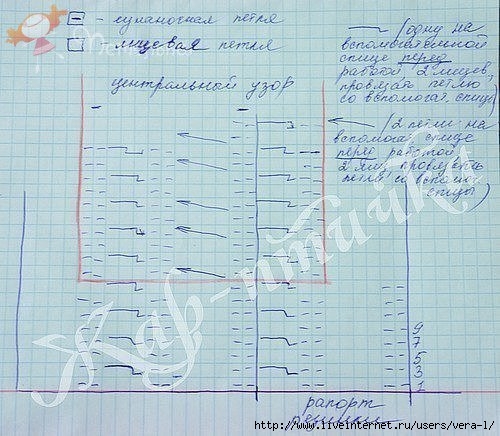 - изнаночная петля
лицевая петля
центральный узор
(одну на
вспомогательной
спице перед
работой 2 лицев,
провязать петлю
со вспомогат. спицы)
(2 петли на
вспомогат. спице
перед работой
2 лиц. провязать
петли со вспомог
спицы)
Жар-птичка
9
7
5
3
1
рапорт
резинки
http://www.liveinternet.ru/users/vera-l/